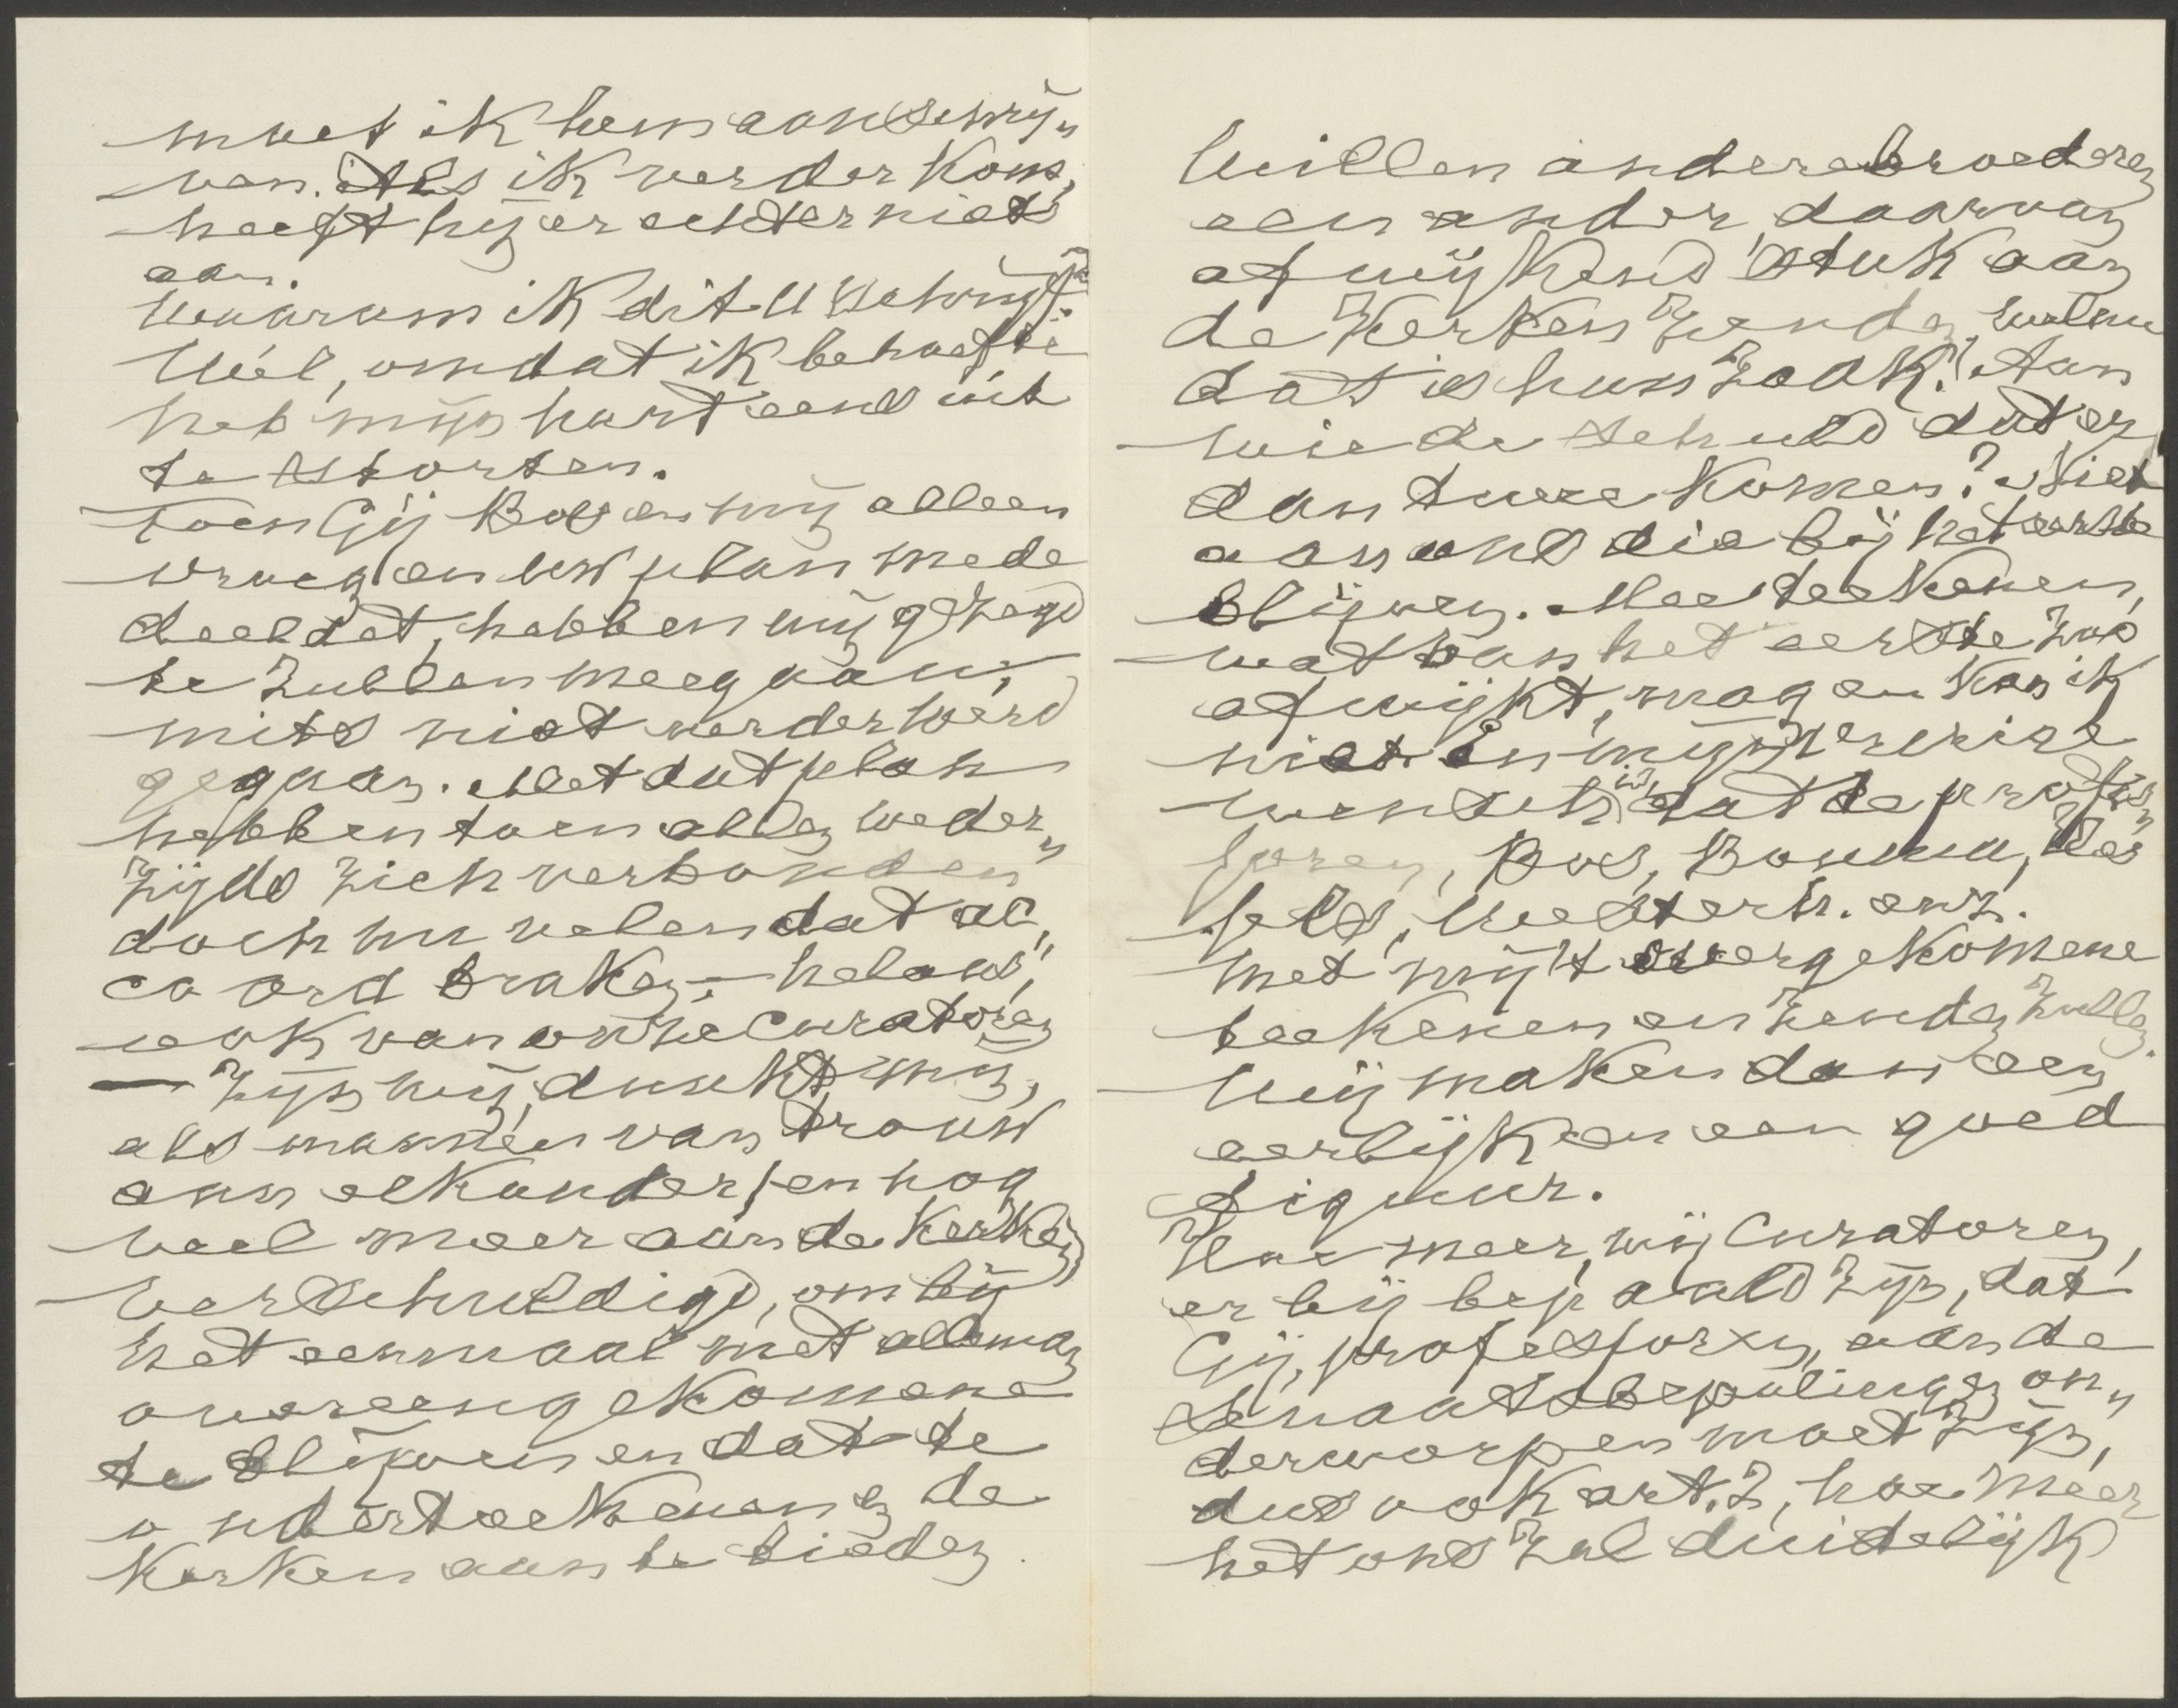 moet ik hem aanschrij„
ven. Als ik verder kom,
heeft hij er echter niets
aan.
Waarom ik dit U schrijf?
Wel, omdat ik behoefte
heb mijn hart eens uit
te storten.
Toen Gij Bos en mij alleen
vroeg en uw plan mede
deeldet, hebben wij gezegd
te zullen meegaan,
mits niet verder werd
gegaan. Met dat plan
hebben toen allen weder„
zijds zich verbonden
doch nu velen dat ac„
coord braken, – helaas,
ook van onze Curatoren
— zijn wij, dunkt mij,
als mannen van trouw
aan elkander, en nog
veel meer aan de Kerken
verschuldigd, om bij
het eenmaal met alleman
overeengekomene
te blijven en dat te
onderteekenen en de
Kerken aan te bieden.
Willen andere broederen
een ander, daarvan
afwijkend stuk aan
de Kerken zenden, welnu
dat is hun zaak! Aan
wie de schuld dat er
dan twee komen? Niet
aan ons die bij het eerste
blijven. Meeteekenen,
wat van het eerste zoo
afwijkt, mag en kan ik
niet. En mijn
wensch is, dat de profes„
soren, Bos, Bouma,
Westerh. enz.
met mij 't overgekomene
teekenen en zenden zullen.
Wij maken dan een
eerlijk en een goed
figuur.
Hoe meer, wij Curatoren,
er bij bepaald zijn, dat
Gij, professoren, aan de
Senaatsbepalingen on„
derworpen moet zijn,
dus ook art. 2, hoe meer
het ons zal duidelijk